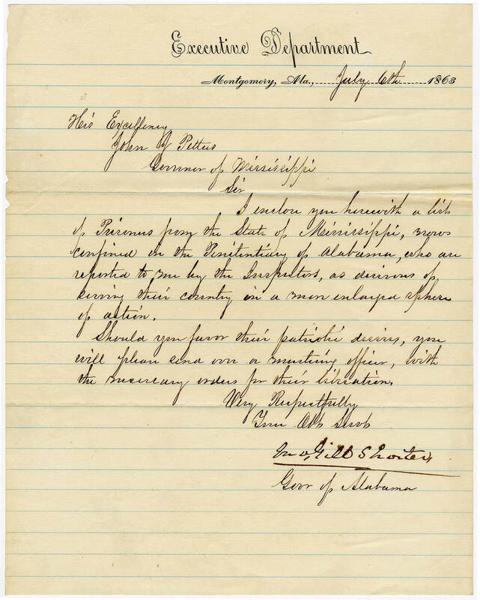 Executive Department
Montgomery, Ala., July 6th 1863
His Excellency
John J Pettus
Governor of Mississippi
Sir
I enclose you herewith a list
of Prisoners from the State of Mississippi, now
confined in the Penitentiary of Alabama, who are
reported to me by the Inspectors, as desirous of
serving their country in a more enlarged sphere
of action.
Should you favor their patriotic desires, you
will please send over a mustering officer, with
the necessary orders for their liberation.
Very Respectfully
Your Obt Servt
Jno Gill Shorter
Govr of Alabama